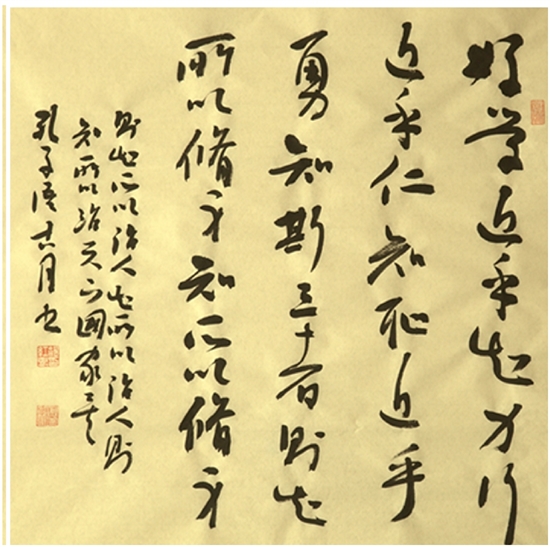 好學近乎知力行
近乎仁知耻近乎
勇知斯三者則知
所以脩身知所以脩身
則知所以治人知所以治人則
知所以治天下國家矣
孔子語 月書